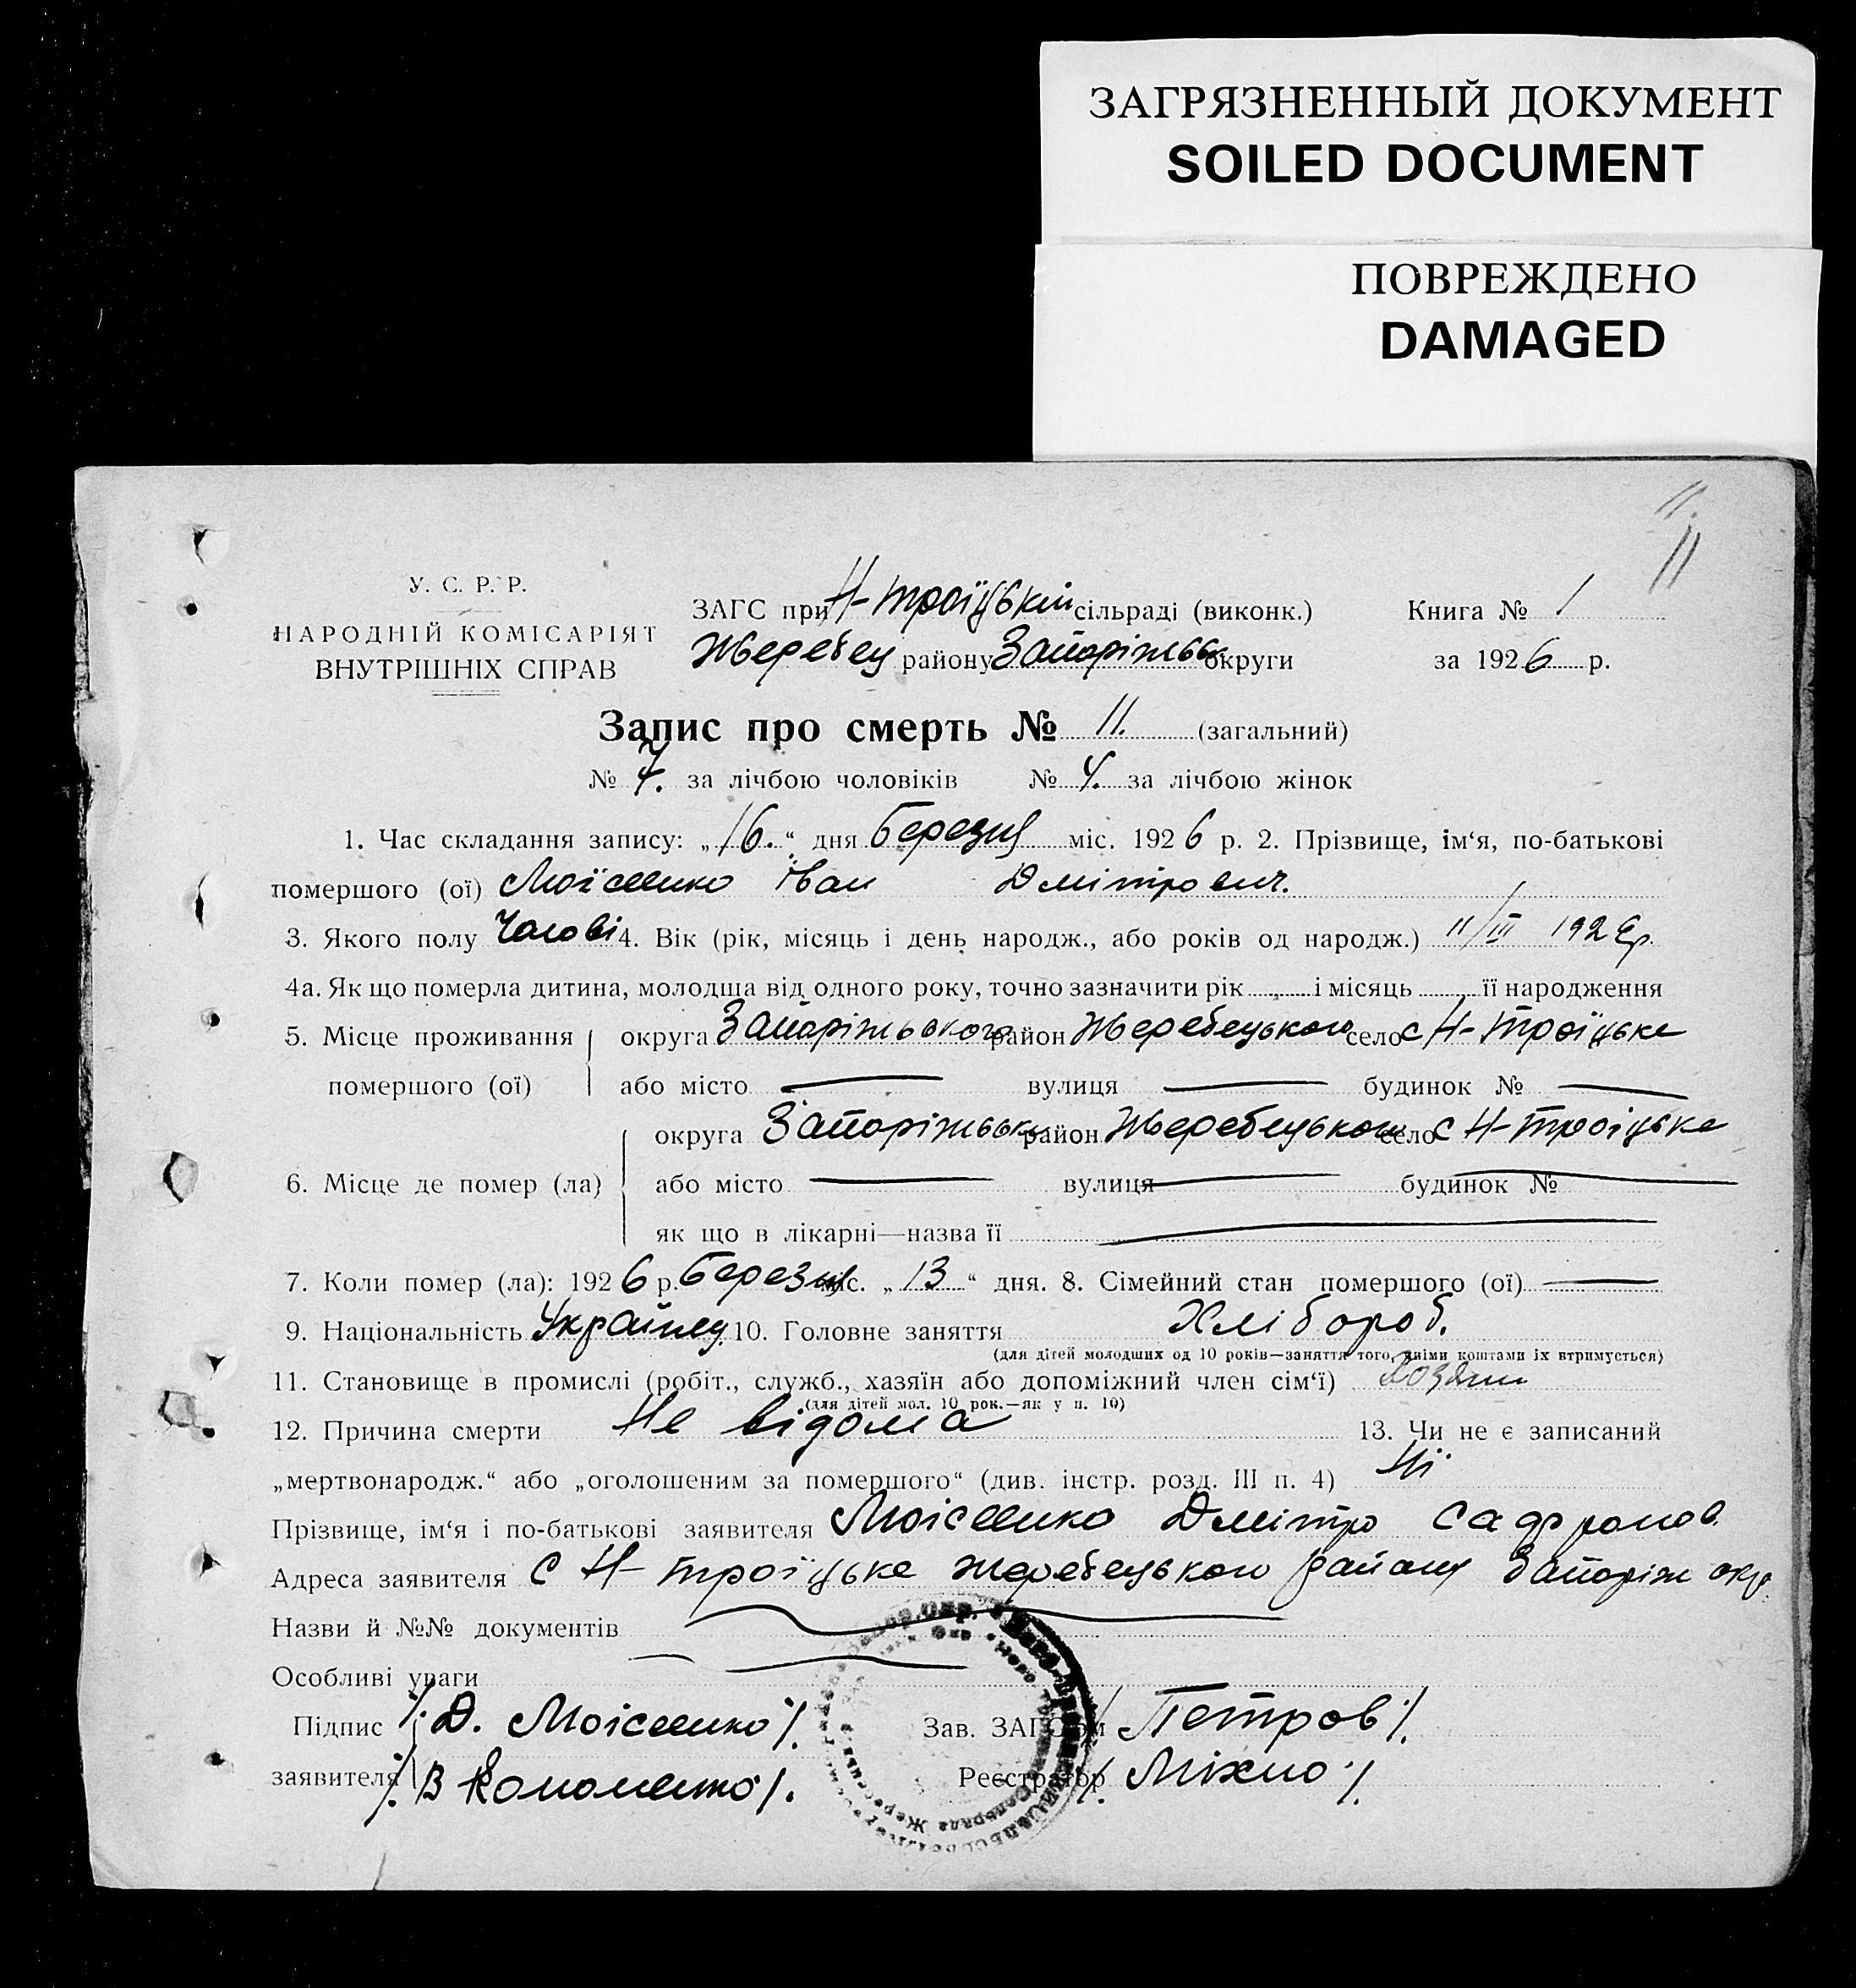 ЗАГРЯЗНЕННЫЙ ДОКУМЕНТ
SOILED DOCUMENT
ПОВРЕЖДЕНО
DAMAGED
11.
11
У. С. Р. Р.
НАРОДНІЙ КОМІСАРІЯТ
ВНУТРІШНІХ СПРАВ
ЗАГС при Н-Троїцькій сільраді (виконк.) Книга № 1
Жеребец району Запоріжськ округи за 1926 р.
Запис про смерть № 11. (загальний)
№ 7. за лічбою чоловіків № 4. за лічбою жінок
1. Час складання запису: „16.“ дня березня міс. 1926 р. 2. Прізвище, ім‘я, по-батькові
помершого (ої) Моїсеенко Іван Дмітрович.
3. Якого полу Чолові 4. Вік (рік, місяць і день народж., або років од народж.) 11/III 1926р.
4а. Як що померла дитина, молодша від одного року, точно зазначити рік і місяць її народження
5. Місце проживання округа Запоріжського район Жеребецького село с Н-Троїцьке
помершого (ої) або місто — вулиця — будинок № —
округа Запоріжськ район Жеребецького село с Н-Троіцьке
6. Місце де помер (ла) або місто — вулиця — будинок № —
як що в лікарні—назва її —
7. Коли помер (ла): 1926 р. березня міс. „13“ дня. 8. Сімейний стан помершого (ої) —
9. Національність Украінец 10. Головне заняття Хлібороб.
(для дітей молодших од 10 років—заняття того, якіми коштами їх втримується)
11. Становище в промислі (робіт., служб., хазяїн або допоміжний член сім‘ї)
(для дітей мол. 10 рок.—як у п. 10)
12. Причина смерти Не відома 13. Чи не є записаний
„мертвонародж.“ або „оголошеним за помершого“ (див. інстр. розд. III п. 4) Ні
Прізвище, ім‘я і по-батькові заявителя Моісеенко Дмітро Садронов
Адреса заявителя С Н-Троїцьке Жеребецького району Запоріж окр.
Назви й №№ документів —
Особливі уваги —
Підпис /. Д. Моісеенко /. Зав. ЗАГСом /. Петров /.
заявителя /. В Кономенко /. Реєстратор /. Міхно /.